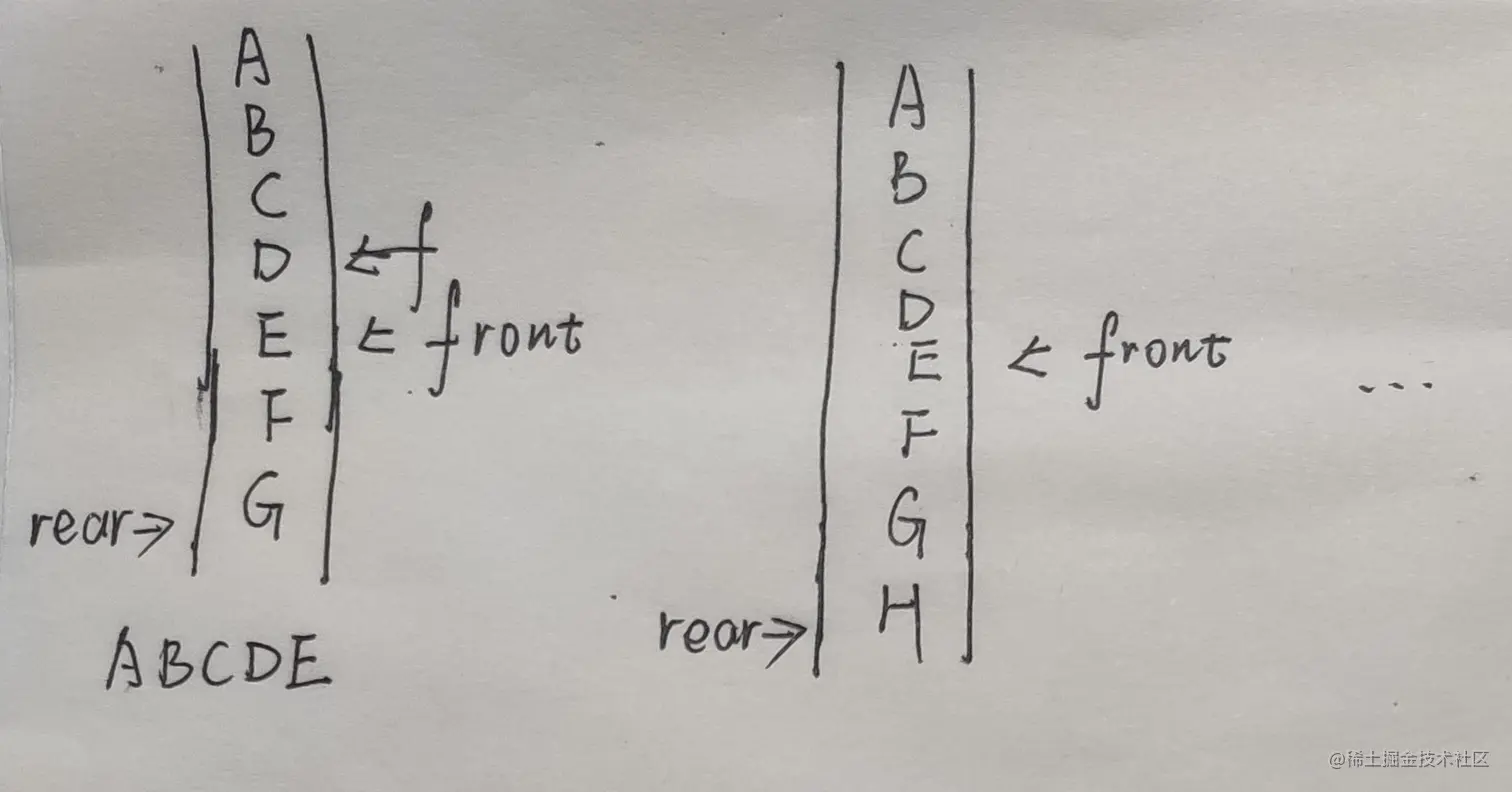 A
B
C
D ← f
E ← front
F
G
rear→
ABCDE
A
B
C
D
E ← front ...
F
G
H
rear→
@稀土掘金技术社区